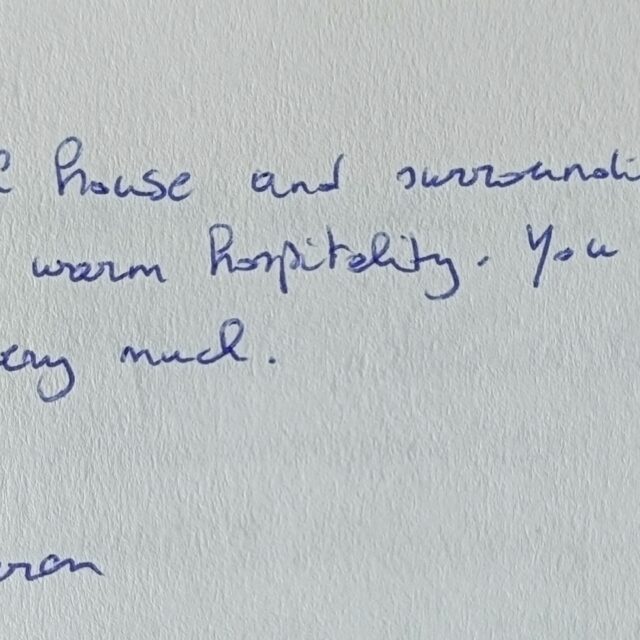 house and surroundi
warm hospitality. You
ery much.